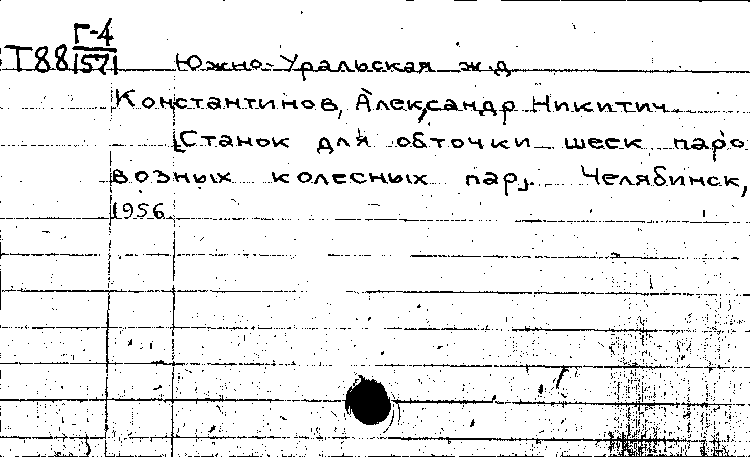 Г-4
Т88 1571 Южно-Уральская ж.д.
Константинов, Александр Никитич.
[Станок для обточки шеек паро
возных колесных пар]. Челябинск,
1956.